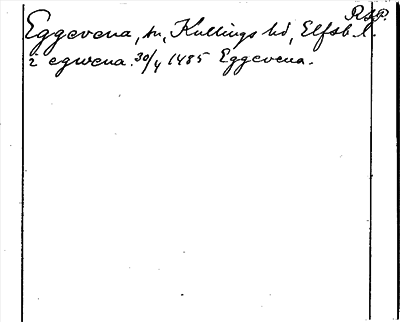 RAP.
Eggevena, sn, Kullings hd, Elfsb. l.
i egwena. 30/4 1485 Eggevena.